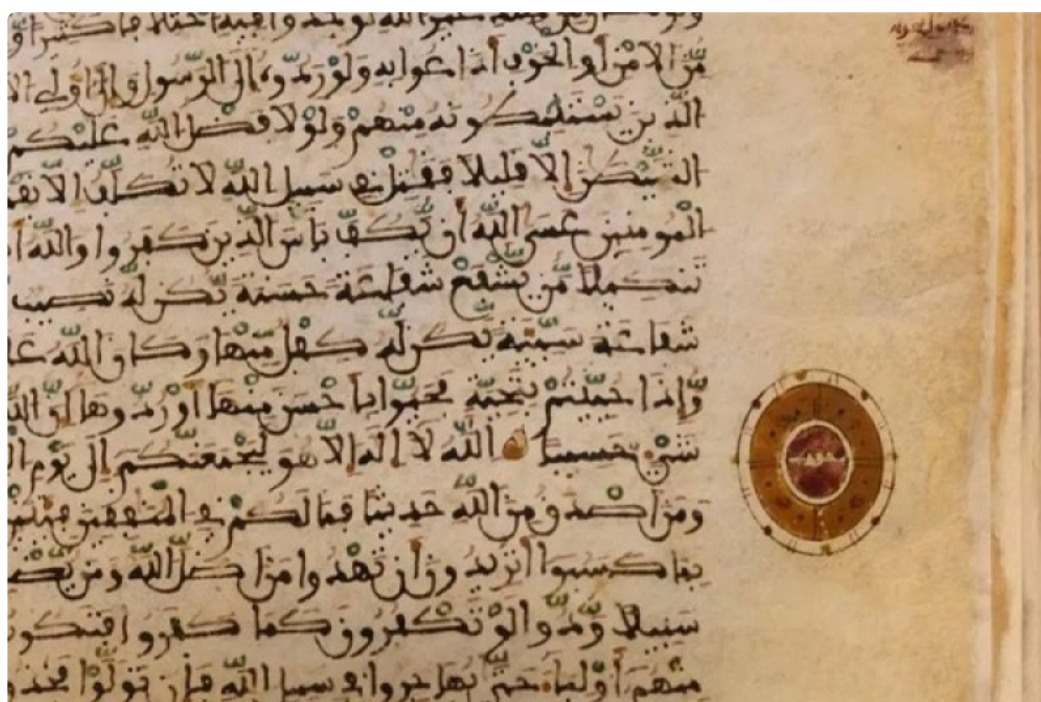 لوجدوا فيه اختلافا كثيرا و
مّن الامن أو الخوف أذاعوا به ولو ردّوه إلى الرّسول وإلى أولي الا
الذين يستنبطونه منهم ولولا فضل اللّه عليكم
الشّيطن إلّا قليلا فقتل في سبيل اللّه لا تكلّف إلّا نف
المومنين عسى اللّه أن يّكفّ بأس الذين كفروا واللّه أ
تنكيلا مّن يّشفع شفاعة حسنة يّكن لّه نصيب
شفاعة سيّئة يّكن لّه كفل مّنها وكان اللّه ع
وّإذا حيّيتم بتحيّة فحيّوا بأحسن منها أو ردّوها إنّ الل
شيء حسيبا اللّه لا إله إلّا هو ليجمعنّكم إلى يوم ال
ومن أصدق من اللّه حديثا فما لكم في المنفقين فئتين
بما كسبوا أتريدون أن تهدوا من أضلّ اللّه ومن يّض
سبيلا ودّوا لو تكفرون كما كفروا فتكون
منهم أولياء حتّى يهاجروا في سبيل اللّه فإن تولّوا فخذو